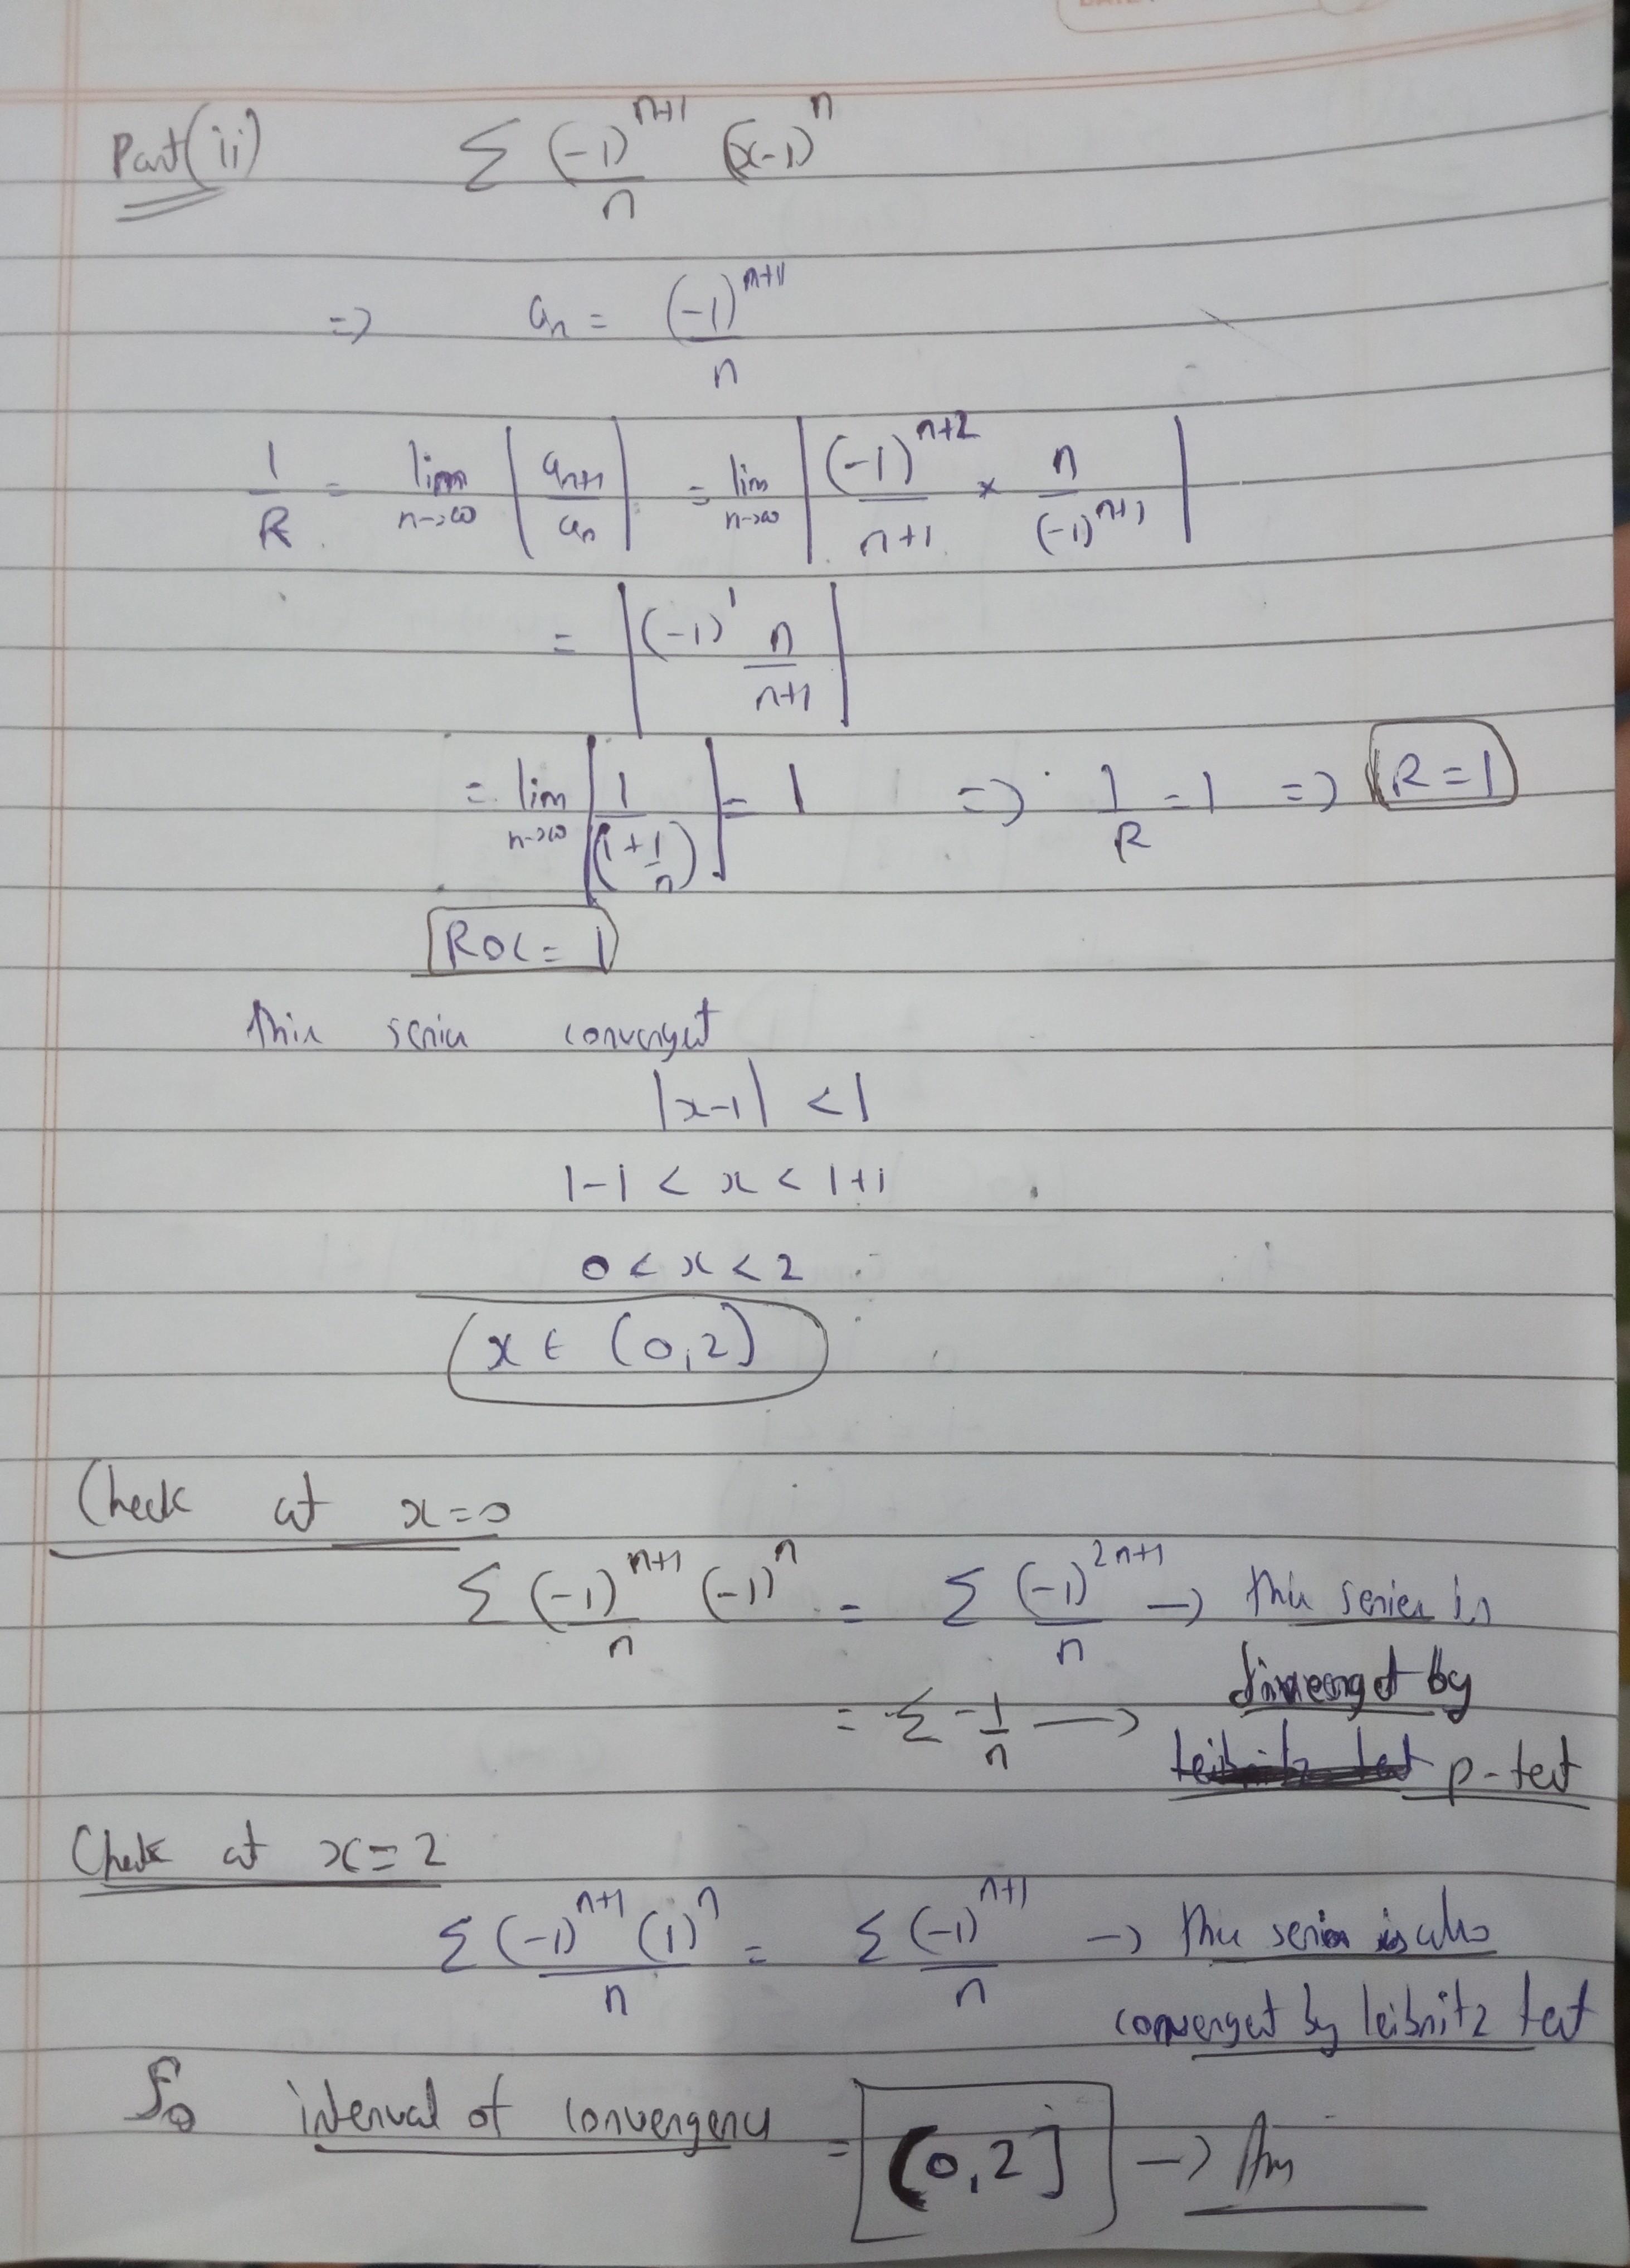 Part(ii) Σ (-1)^{n+1}/n (x-1)^n
=> a_n = (-1)^{n+1}/n
1/R = lim_{n->∞} |a_{n+1}/a_n| = lim_{n->∞} |(-1)^{n+2}/(n+1) × n/(-1)^{n+1}|
= |(-1)^1 n/(n+1)|
= lim_{n->∞} |1/(1+1/n)| = 1 => 1/R = 1 => R=1
ROC = 1
This series converget
|x-1| < 1
1-1 < x < 1+1
0 < x < 2
x ∈ (0,2)
Check at x=0
Σ (-1)^{n+1}/n (-1)^n = Σ (-1)^{2n+1}/n -> this series is
= Σ -1/n -> diverget by
p-test
Check at x=2
Σ (-1)^{n+1} (1)^n/n = Σ (-1)^{n+1}/n -> this series is also
converget by leibnitz test
So interval of convergency = (0,2] -> Ans